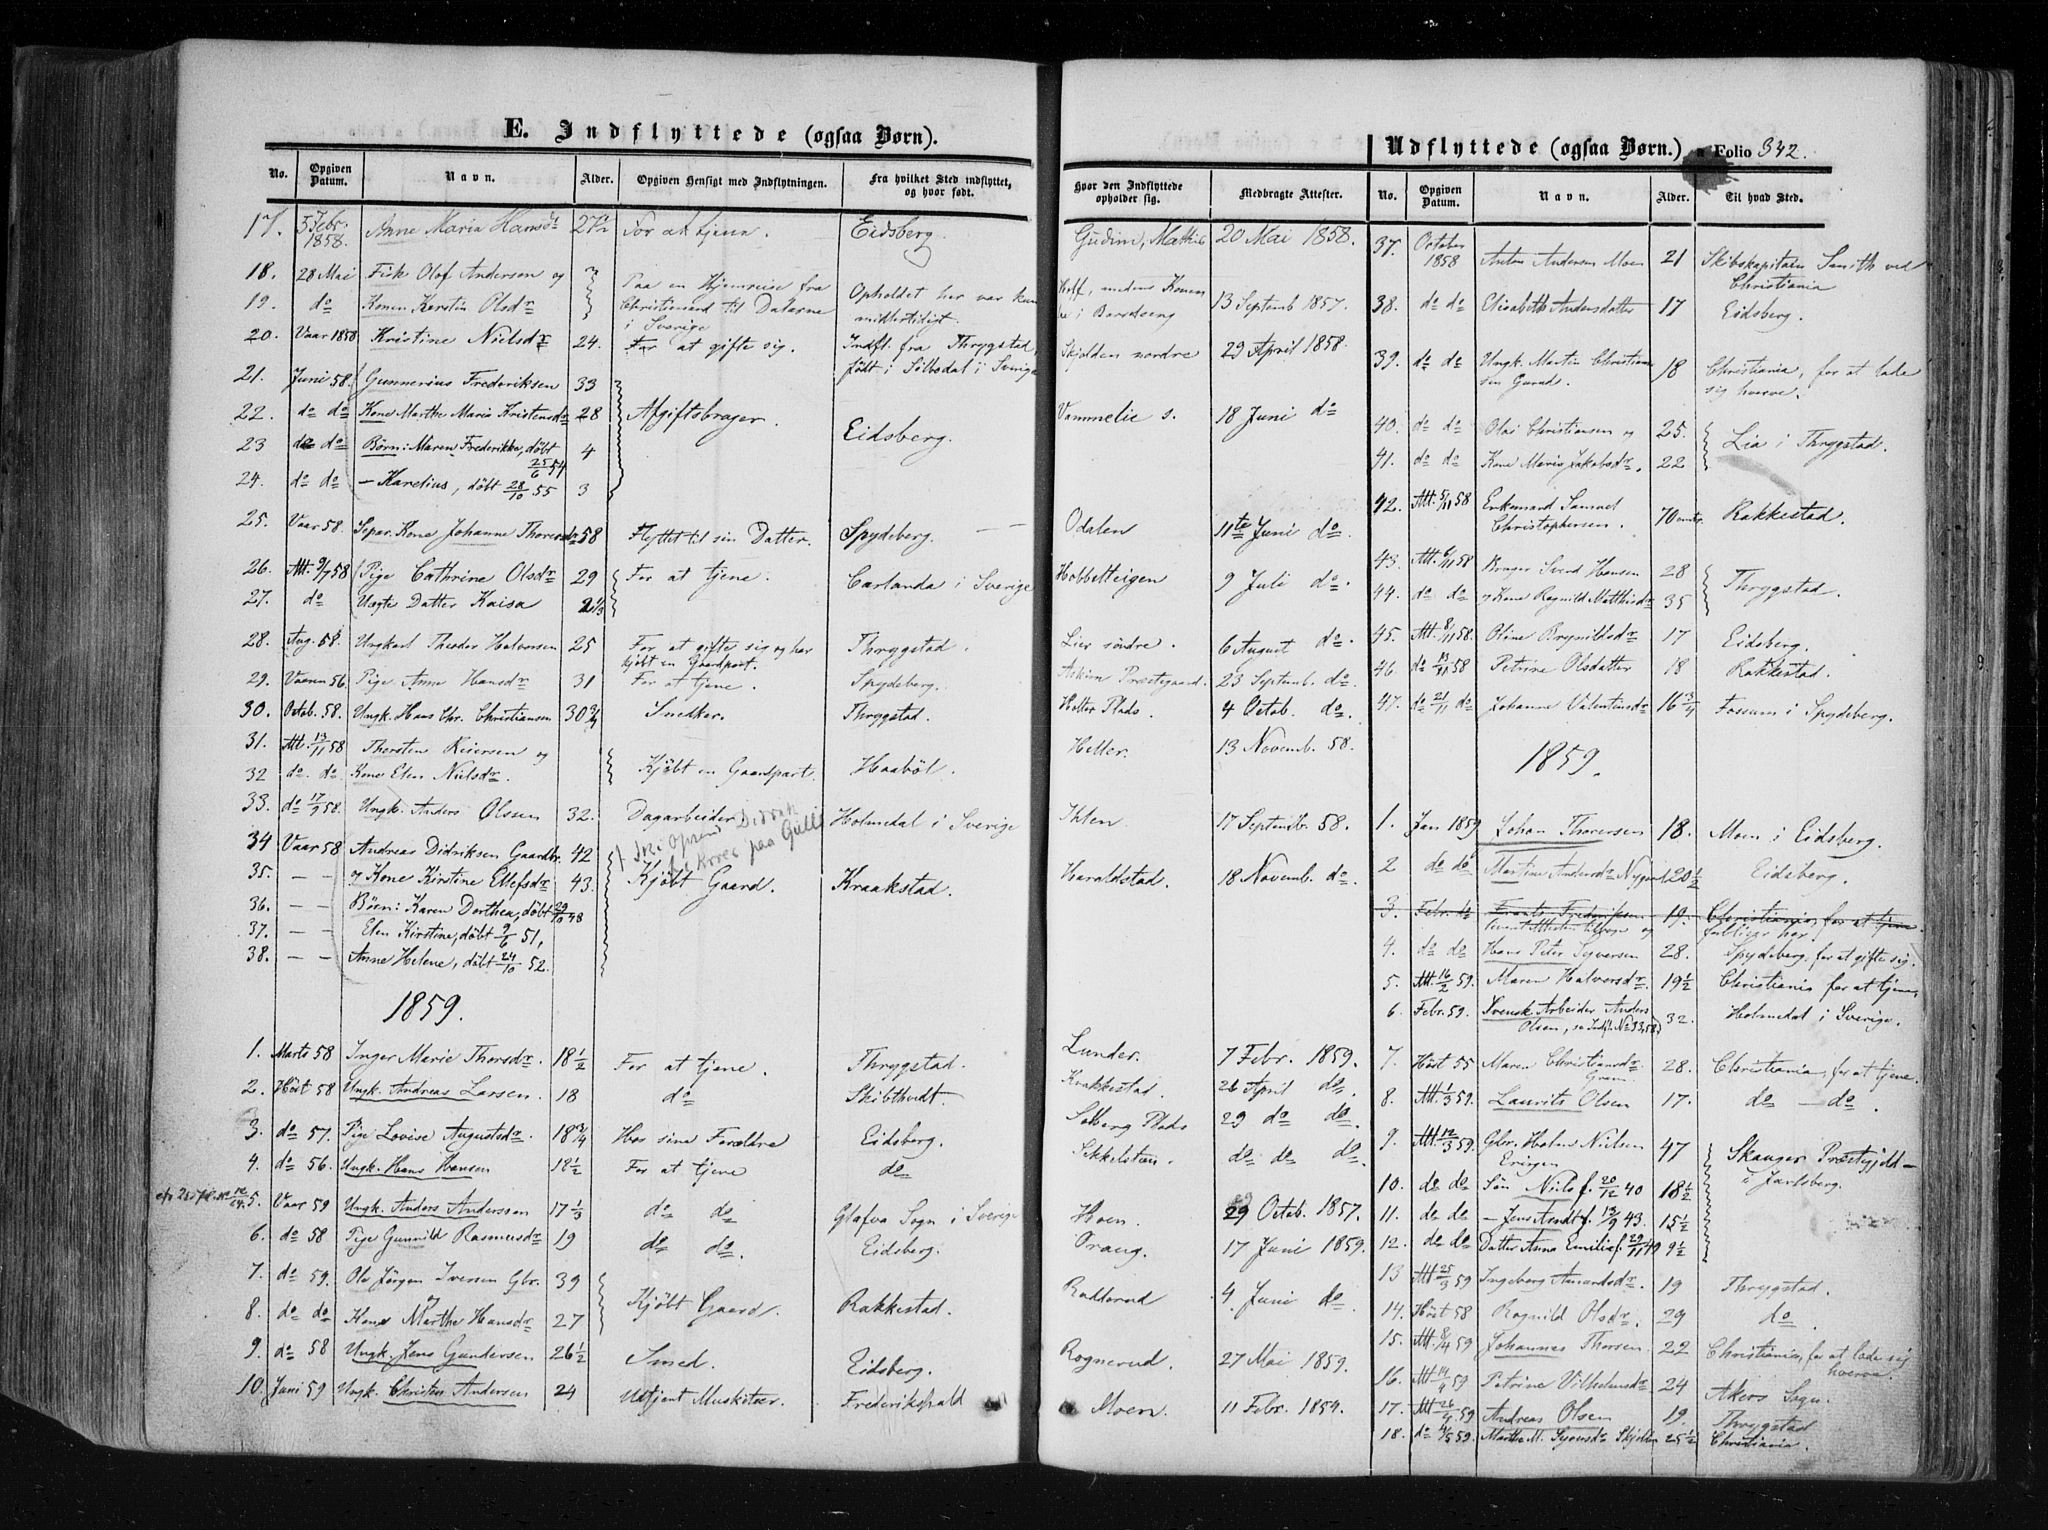 E. Indflyttede (ogsaa Børn).
No. | Opgiven Datum. | Navn. | Alder. | Opgiven Hensigt med Indflytningen. | Fra hvilket Sted indflyttet, og hvor født. | Hvor den Indflyttede opholder sig. | Medbragte Attester.
17. | 5 Febr. 1858. | Anne Maria Hansdr | 27½ | For at tjene. | Eidsberg. | Gudim, Mathis | 20 Mai 1858.
18. | 28 Mai | Fisk Olof Andersen og | Paa en Hjemreise fra | Opholdet her var kun | medens Konen | 13 Septemb 1857.
19. | do | Konen Kerstin Olsdr | Christiansand til Dalarne i Sverige | midlertidigt.
20. | Vaar 1858 | Kristine Nielsdr | 24. | For at gifte sig. | Indfl. fra Thrygstad, født i Silbodal i Sverige | Skjolden nordre | 29 April 1858.
21. | Juni 58. | Gunnerius Frederiksen | 33
22. | do do | Kone Marthe Maria Kristensdr | 28 | Afgiftsbruger. | Eidsberg. | Vammelie s. | 18 Juni do
23 | do do | Børn: Maren Frederikke, døbt 25/6 54 | 4
24. | do do | — Karelius, døbt 28/10 55 | 3
25. | Vaar 58. | Separ. Kone Johanne Thoresdr | 58 | Flyttet til sin Datter. | Spydeberg. — — | Odalen | 11te Juni do.
26. | Att. 9/7 58 | Pige Cathrine Olsdr | 29 | For at tjene. | Carlanda i Sverige | Hobbelteigen | 9 Juli do.
27. | do | Uægte Datter Kaisa | 2 1/3
28. | Aug. 58. | Ungkarl Theodor Halvorsen | 25 | For at gifte sig og har kjøbt en Gaardpart. | Thrygstad. | Lier søndre. | 6 August do.
29. | Vaaren 56 | Pige Anne Hansdr. | 31 | For at tjene. | Spydeberg. | Askim Præstegaard. | 23 Septemb. do.
30. | Octob. 58. | Ungk. Hans Chr. Christiansen | 30 3/4 | Snedker. | Thrygstad. | Helter Plads. | 4 Octob. do.
31. | Att. 13/11 58 | Thorsten Reiersen og | Hetter. | 13 Novemb. 58.
32 | do. do. | Kone Elen Nielsdr. | Kjøbt en Gaardpart. | Haabøl.
33. | do 17/9 58. | Ungk. Anders Olssen | 32. | Dagarbeider | Holmedal i Sverige | Ihlen. | 17 Septembr. 58.
34 | Vaar 58 | Andreas Didriksen Gaardbr. | 42
35. | — — | og Kone Kirstine Ellefsdr | 43. | Kjøbt Gaard. | Kraakstad. | Haraldstad. | 18 Novemb. do.
36. | — — | Børn: Karen Dorthea, døbt 29/10 48
37. | — — | Elen Kirstine, døbt 9/6 51,
38. | — — | Anne Helene, døbt 24/10 52.
1859.
1. | Marts 58 | Inger Marie Thorsdr. | 18½ | For at tjene. | Thrygstad. | Lunder. | 7 Febr. 1859.
2. | Høst 58 | Ungk. Andreas Larsen. | 18 | do | Skibthvedt. | Krakkestad. | 26 April do.
3. | do 57. | Pige Lovise Augustsdr. | 18 3/4 | Hos sine Forældre | Eidsberg. | Solberg Plads | 29 do do.
4. | do 56. | Ungk. Hans Hansen | 18½ | For at tjene | do | Sikkelstøen. | do do do.
5. | Vaar 59 | Ungk. Anders Anderssen | 17 1/3 | do do | Glafva Sogn i Sverige | Hoen. | 29 Octob. 1857.
6. | do 58 | Pige Gunnild Rasmusdr | 19 | do do. | Eidsberg. | Oraug. | 17 Juni 1859.
7. | do 59. | Ole Jørgen Iversen Gbr. | 39
8. | do do | og Kone Marthe Hansdr | 27 | Kjøbt Gaard | Rakkestad. | Rakkerud | 4 Juni do.
9. | do 58 | Ungk. Jens Gundersen | 26½ | Smed. | Eidsberg. | Rognerud. | 27 Mai 1859.
10. | Juni 59 | Ungk. Christen Andersen | 24 | Udtjent Musketeer. | Frederikshald | Moen. | 11 Febr. 1854.
Udflyttede (ogsaa Børn.) Folio 342.
No. | Opgiven Datum. | Navn. | Alder. | Til hvad Sted.
37. | October 1858 | Anton Andersen Moen | 21 | Skibskapitain Smith ved Christiania
38. | do do | Elisabeth Andersdatter | 17 | Eidsberg.
39. | do do | Ungk. Martin Christiansen Gurud. | 18 | Christiania, for at lade sig hverve.
40. | do do | Olai Christiansen og | 25. | Lia i Thrygstad.
41. | do do | Kone Maria Jakobsdr. | 22
42. | Att. 5/11 58 | Enkemand Samuel Christophersen. | 70 omtr. | Rakkestad.
43. | Att. 6/11 58 | Bruger Svend Hansen | 28 | Thrygstad.
44. | do do | og Kone Ragnild Matthisdr | 35
45. | Att. 8/11 58. | Oline Brynildsdr | 17 | Eidsberg.
46. | do 13/11 58 | Petrine Olsdatter | 18 | Rakkestad.
47. | do 21/11 do | Johanne Valentinsdr | 16 3/4 | Fossum i Spydeberg.
1859.
1. | Jan 1859 | Johan Thoresen | 18. | Moen i Eidsberg.
2 | do do | Martine Andersdr Nygaard | 20½ | Eidsberg.
3. | Febr. do | Frants Frederiksen | 19. | Christiania, for at tjene.
4. | do do | Hans Peter Syversen | 28. | Spydeberg, for at gifte sig.
5. | Att. 16/2 59. | Maren Halvorsdr. | 19½ | Christiania for at tjene,
6. | Febr. 59. | Svensk Arbeider Anders Olsen, se Indfl. No 33, 58) | 32. | Holmedal i Sverige.
7. | Høst 55 | Maren Christiansdr | 28. | Christiania, for at tjene.
8. | Att. 1/3 59. | Laurits Olsen | 17. | do — do.
9. | Att. 12/3 59. | Gbr. Holm Nilsen | 47 | Skauger Præstegjeld i Jarlsberg.
10. | do do | Søn Niels f. 20/12 40 | 18½
11. | do do | — Jens Arndt f. 13/9 43. | 15½
12. | do do | Datter Anna Emilie f. 29/11 49 | 9½
13 | Att 25/3 59 | Ingeborg Amundsdr. | 19 | Thrygstad.
14. | Høst 58 | Ragnild Olsdr. | 29 | do.
15. | Att. 8/4 59 | Johannes Thorsen | 22 | Christiania, for at lade sig hverve.
16. | Att 14/4 59 | Petrine Vilhelmsdr. | 24 | Akers Sogn.
17. | Att 26/4 59 | Andreas Olsen | 19. | Thrygstad
18. | do 4/5 59. | Marthe M. Syversdr Skjolden | 25½ | Christiania.